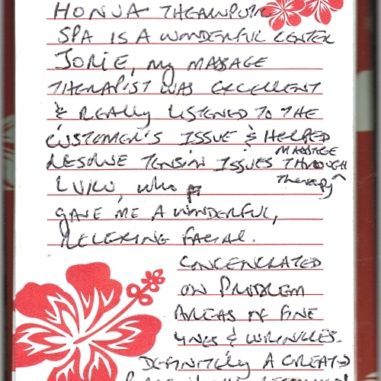 HONUA THERAPUTIC
SPA IS A WONDERFUL CENTER
JORIE, MY MASSAGE
THERAPIST WAS EXCELLENT
& REALLY LISTENED TO THE
CUSTOMER'S ISSUE & HELPED
RESOLVE TENSION ISSUES THROUGH
MASSAGE
THERAPY
WHO
GAVE ME A WONDERFUL,
RELEXING FACIAL.
CONCENTRATED
ON PROBLEM
AREAS OF FINE
LINES & WRINKLES.
DEFINITELY A GREAT